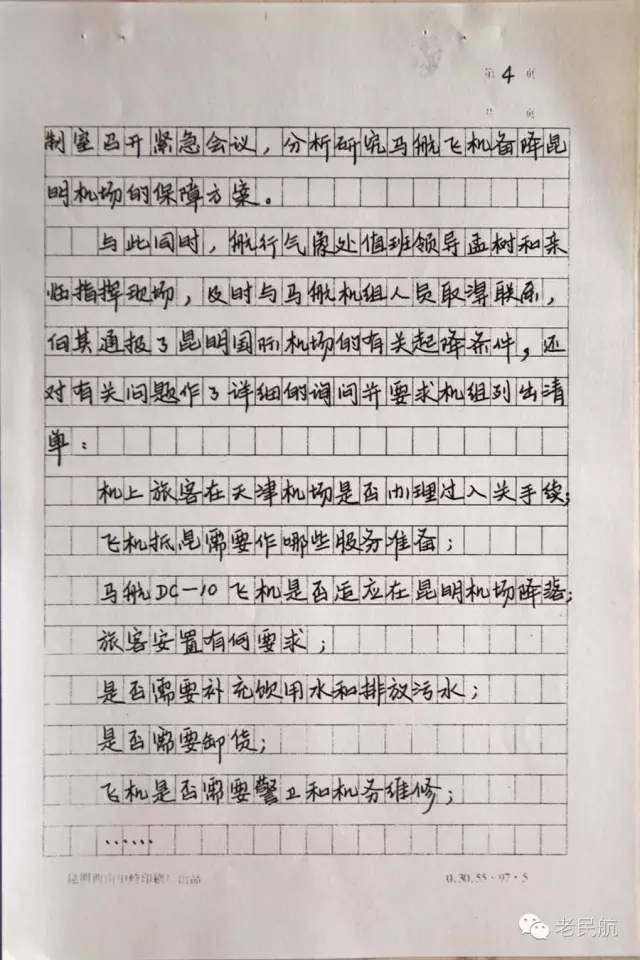 第 4 页
共 页
制室召开紧急会议，分析研究马航飞机备降昆
明机场的保障方案。
与此同时，航行气象处值班领导孟树和亲
临指挥现场，及时与马航机组人员取得联系，
向其通报了昆明国际机场的有关起降条件，还
对有关问题作了详细的询问并要求机组列出清
单：
机上旅客在天津机场是否办理过入关手续；
飞机抵昆需要作哪些服务准备；
马航DC—10飞机是否适应在昆明机场降落；
旅客安置有何要求；
是否需要补充饮用水和排放污水；
是否需要卸货；
飞机是否需要警卫和机务维修；
……
昆明西山印刷厂出品 0.30.55·97·5
老民航